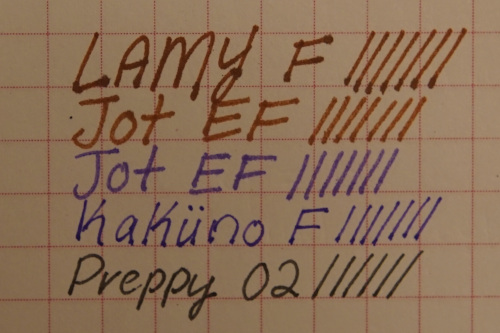 LAMY F ///////
Jot EF ///////
Jot EF ///////
Kaküno F ///////
Preppy 02 //////